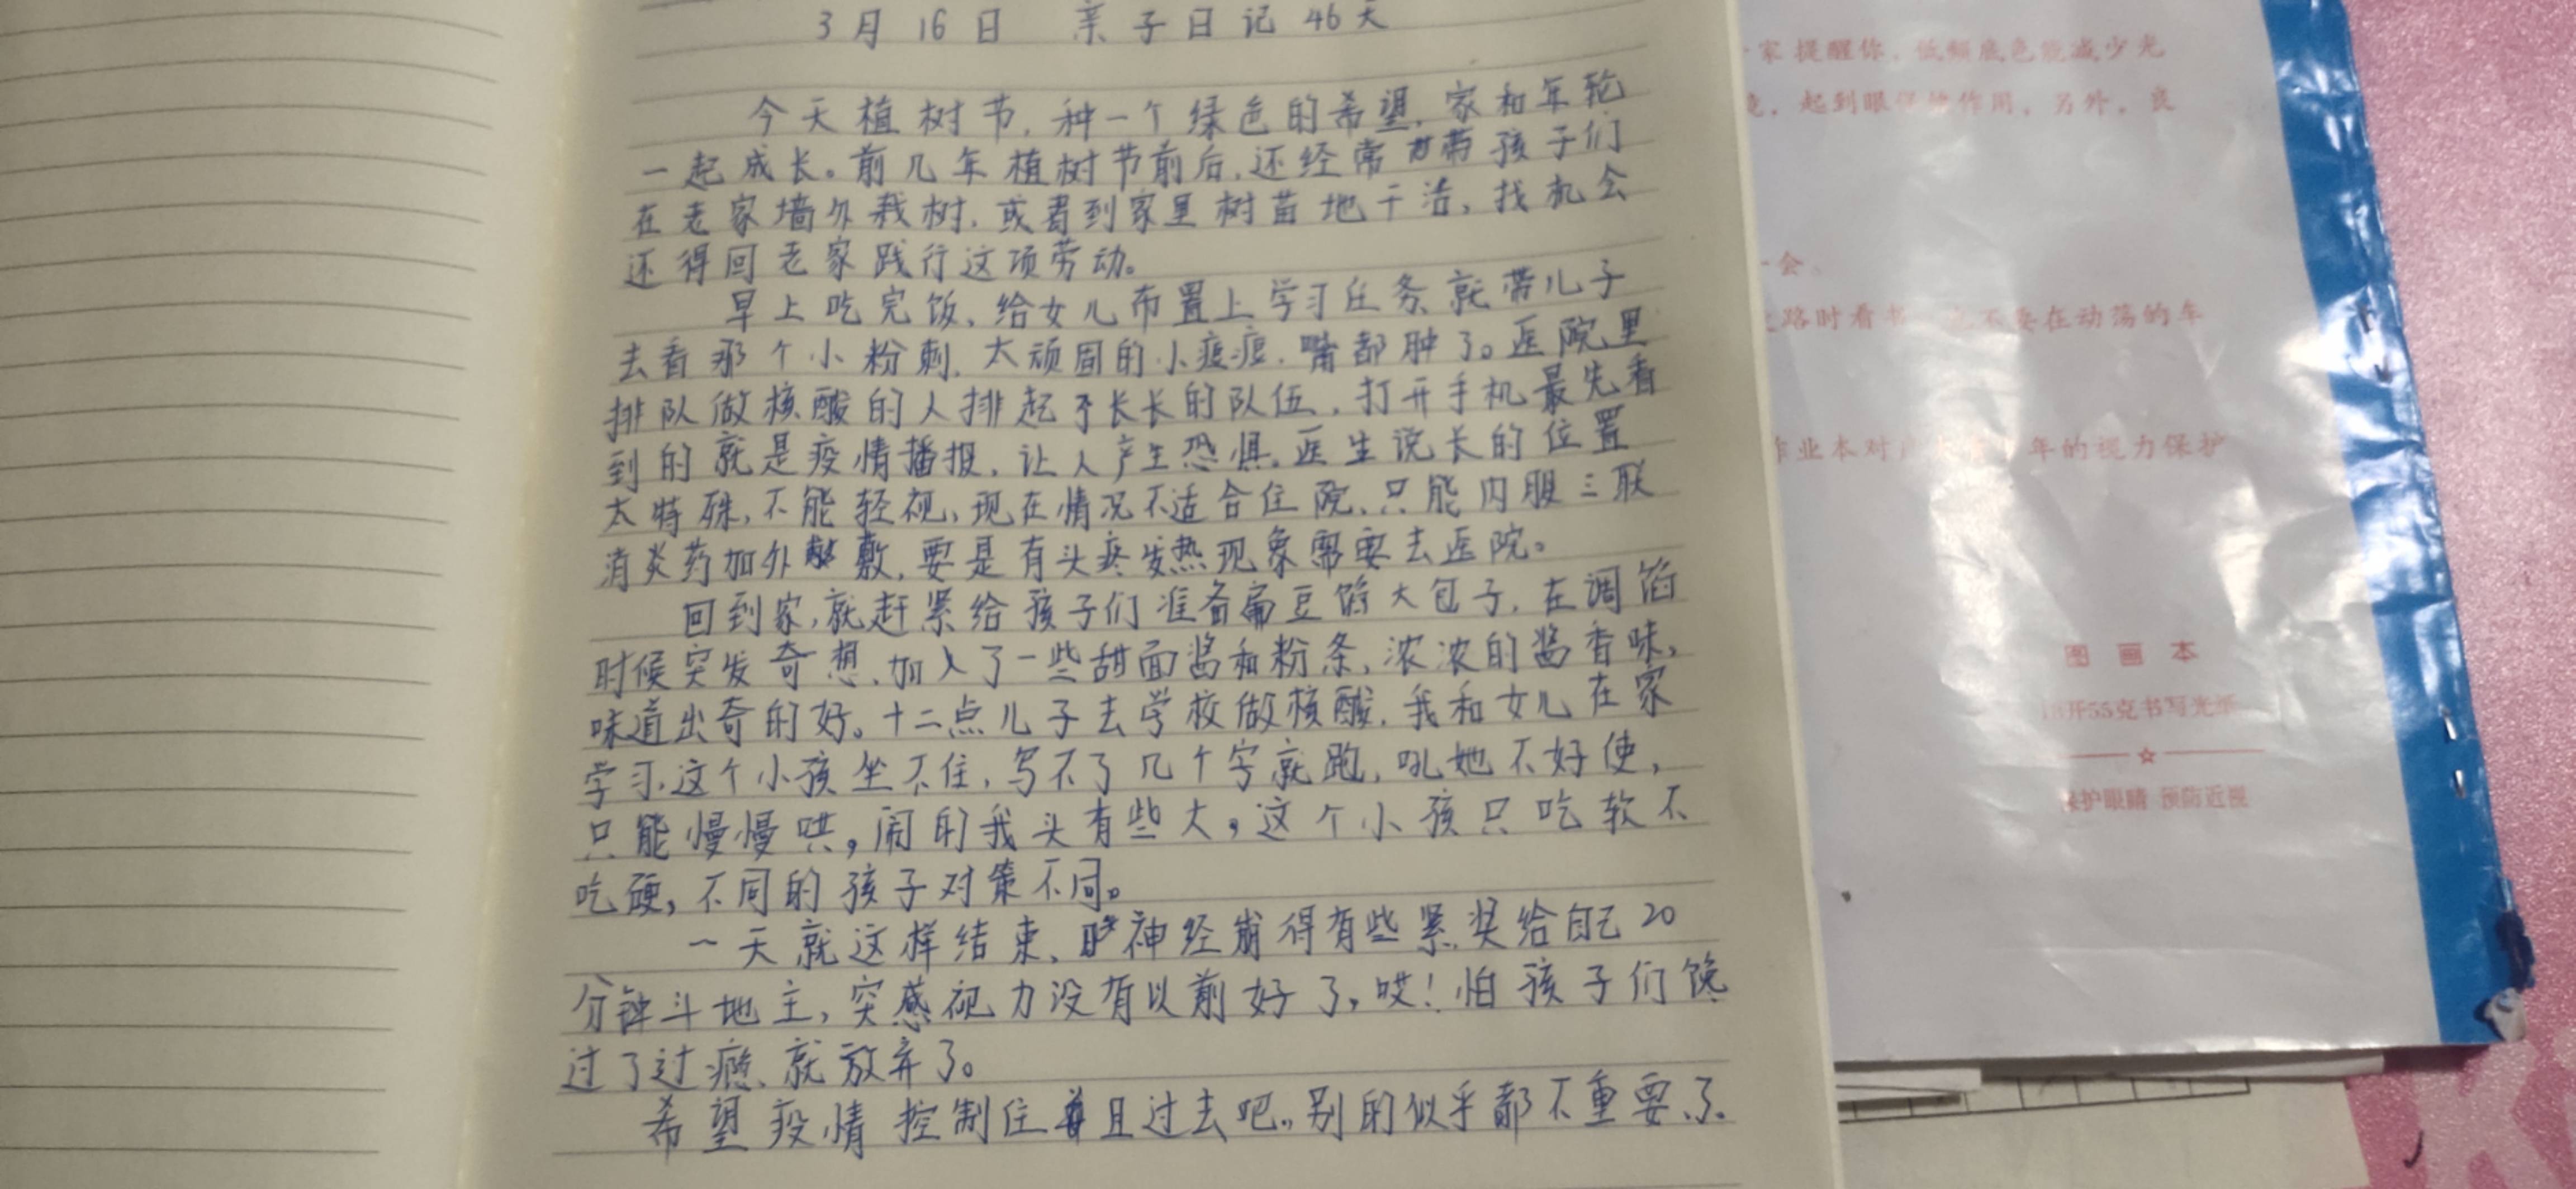 3月16日 亲子日记46天
今天植树节,种一个绿色的希望,家和年轮
一起成长。前几年植树节前后,还经常带孩子们
在老家墙外栽树,或者到家里树苗地干活,找机会
还得回老家践行这项劳动。
早上吃完饭,给女儿布置上学习任务就带儿子
去看那个小粉刺,太顽固的小痘痘,嘴都肿了。医院里
排队做核酸的人排起了长长的队伍,打开手机最先看
到的就是疫情播报,让人产生恐惧。医生说长的位置
太特殊,不能轻视,现在情况不适合住院,只能内服三联
消炎药加外敷,要是有头疼发热现象需要去医院。
回到家,就赶紧给孩子们准备扁豆馅大包子,在调馅
时候突发奇想,加入了一些甜面酱和粉条,浓浓的酱香味,
味道出奇的好。十二点儿子去学校做核酸,我和女儿在家
学习,这个小孩坐不住,写不了几个字就跑,吼她不好使,
只能慢慢哄,闹的我头有些大,这个小孩只吃软不
吃硬,不同的孩子对策不同。
一天就这样结束,神经崩得有些紧,奖给自己20
分钟斗地主,突感视力没有以前好了,哎!怕孩子们馋
过了过瘾,就放弃了。
希望疫情控制住,且过去吧,别的似乎都不重要了。
家提醒你,低频底色能减少光
起到眼保健作用,另外,良
会。
路时看书 不要在动荡的车
作业本对 年的视力保护
图画本
开55克书写光
保护眼睛 预防近视